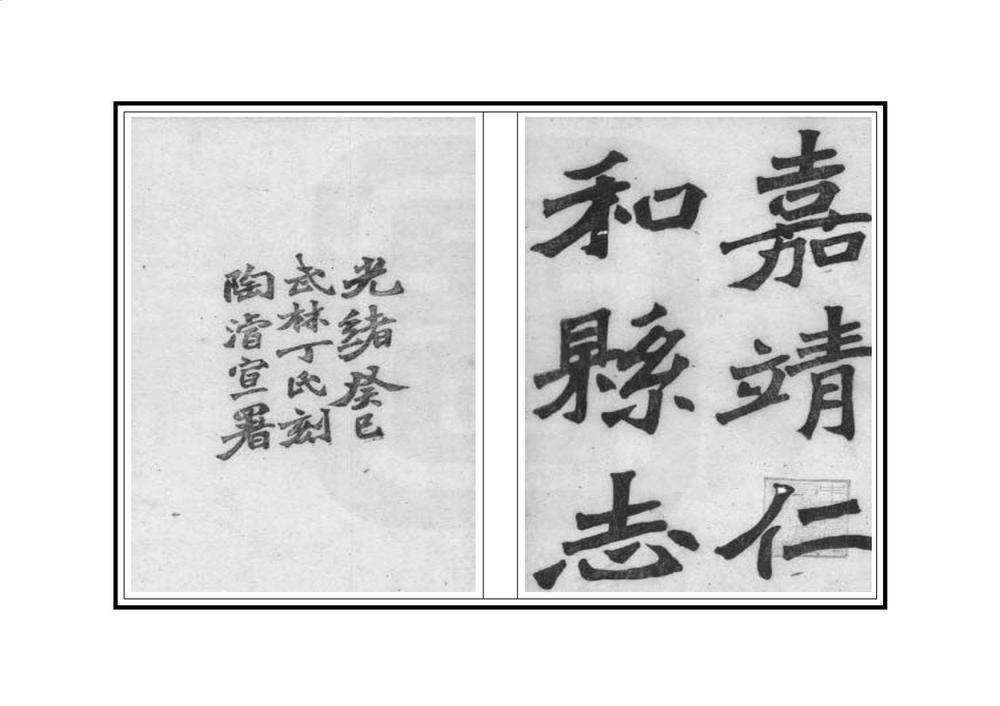 嘉靖仁
和縣志
光緒癸巳
武林丁氏刻
陶濬宣署